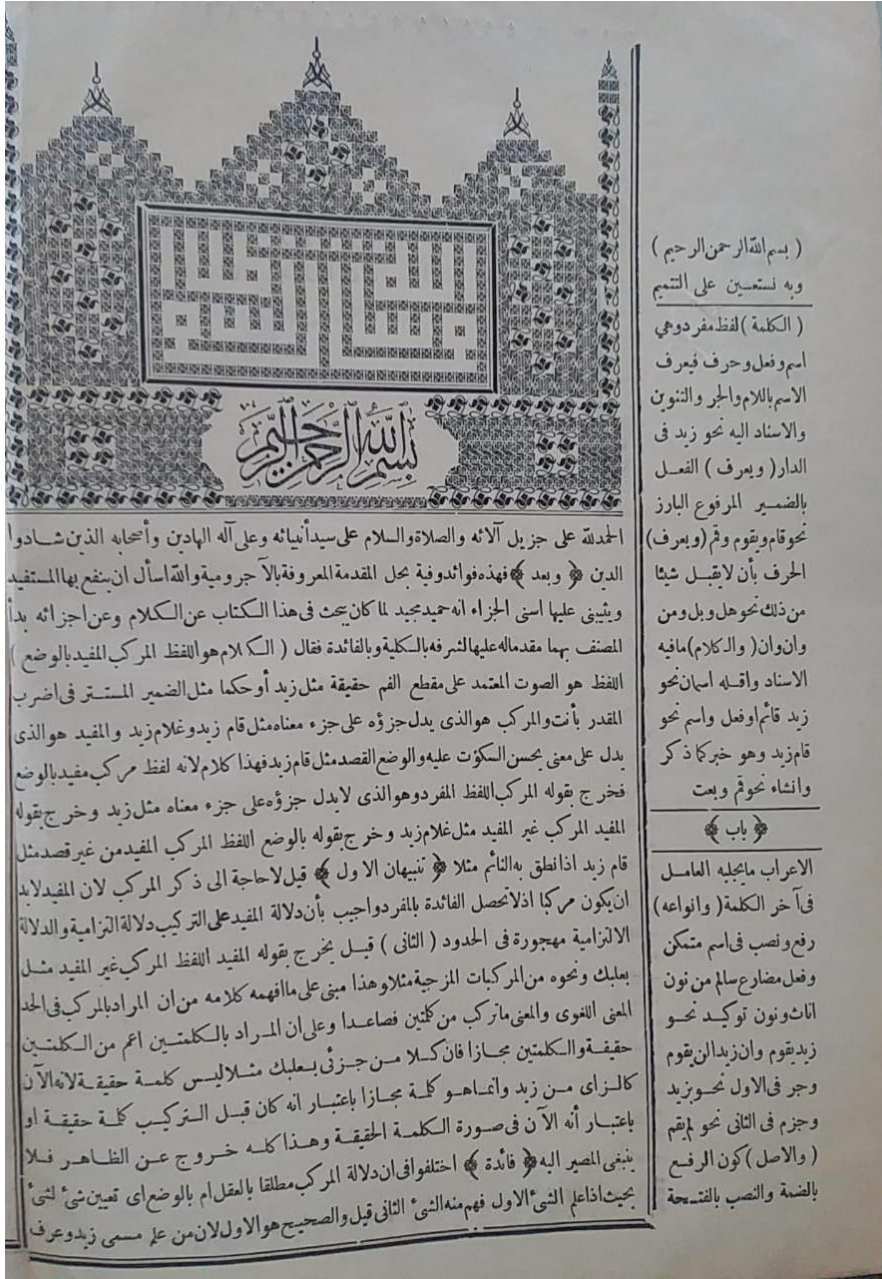 بسم الله الرحمن الرحيم
الحمدلله على جزيل آلائه والصلاة والسلام على سيد أنبيائه وعلى آله الهادين وأصحابه الذين شادوا
الدين ﴿ وبعد ﴾ فهذه فوائد وفية بحل المقدمة المعروفة بالآجرومية والله اسأل ان ينفع بها المستفيد
ويثيبني عليها اسنى الجزاء انه حميد مجيد لما كان يبحث فى هذا الكتاب عن الكلام وعن اجزائه بدأ
المصنف بهما مقدما له عليها لشرفه بالكلية وبالفائدة فقال ( الكلام هو اللفظ المركب المفيد بالوضع )
اللفظ هو الصوت المعتمد على مقطع الفم حقيقة مثل زيد أو حكما مثل الضمير المستتر فى اضرب
المقدر بأنت والمركب هو الذى يدل جزؤه على جزء معناه مثل قام زيد وغلام زيد والمفيد هو الذى
يدل على معنى يحسن السكوت عليه والوضع القصد مثل قام زيد فهذا كلام لانه لفظ مركب مفيد بالوضع
فخرج بقوله المركب اللفظ المفرد وهو الذى لا يدل جزؤه على جزء معناه مثل زيد وخرج بقوله
المفيد المركب غير المفيد مثل غلام زيد وخرج بقوله بالوضع اللفظ المركب المفيد من غير قصد مثل
قام زيد اذا نطق به النائم مثلا ﴿ تنبيهان الاول ﴾ قيل لا حاجة الى ذكر المركب لان المفيد لابد
ان يكون مركبا اذ لا تحصل الفائدة بالمفرد واجيب بأن دلالة المفيد على التركيب دلالة التزامية والدلالة
الالتزامية مهجورة فى الحدود ( الثانى ) قيل يخرج بقوله المفيد اللفظ المركب غير المفيد مثل
بعلبك ونحوه من المركبات المزجية مثلا وهذا مبنى على ما افهمه كلامه من ان المراد بالمركب فى الحد
المعنى اللغوى والمعنى ما تركب من كلمتين فصاعدا وعلى ان المراد بالكلمتين اعم من الكلمتين
حقيقة والكلمتين مجازا فان كلا من جزئى بعلبك مثلا ليس كلمة حقيقة لانه الآن
كالزاى من زيد وانما هو كلمة مجازا باعتبار انه كان قبل التركيب كلمة حقيقة او
باعتبار أنه الآن فى صورة الكلمة الحقيقة وهذا كله خروج عن الظاهر فلا
ينبغى المصير اليه ﴿ فائدة ﴾ اختلفوا فى ان دلالة المركب مطلقا بالعقل ام بالوضع اى تعيين شئ لشئ
بحيث اذا علم الشئ الاول فهم منه الشئ الثانى قيل والصحيح هو الاول لان من علم مسمى زيد وعرف
( بسم الله الرحمن الرحيم )
وبه نستعين على التتميم
( الكلمة ) لفظ مفرد وهي
اسم وفعل وحرف فيعرف
الاسم باللام والجر والتنوين
والاسناد اليه نحو زيد فى
الدار ( ويعرف ) الفعل
بالضمير المرفوع البارز
نحو قام ويقوم وقم ( ويعرف )
الحرف بأن لا يقبل شيئا
من ذلك نحو هل وبل ومن
وان وان ( والكلام ) ما فيه
الاسناد واقله اسمان نحو
زيد قائم او فعل واسم نحو
قام زيد وهو خبر كما ذكر
وانشاء نحو قم وبعت
﴿ باب ﴾
الاعراب ما يجلبه العامل
فى آخر الكلمة ( وانواعه )
رفع ونصب فى اسم متمكن
وفعل مضارع سالم من نون
اناث ونون توكيد نحو
زيد يقوم وان زيدا لن يقوم
وجر فى الاول نحو بزيد
وجزم فى الثانى نحو لم يقم
( والاصل ) كون الرفع
بالضمة والنصب بالفتحة